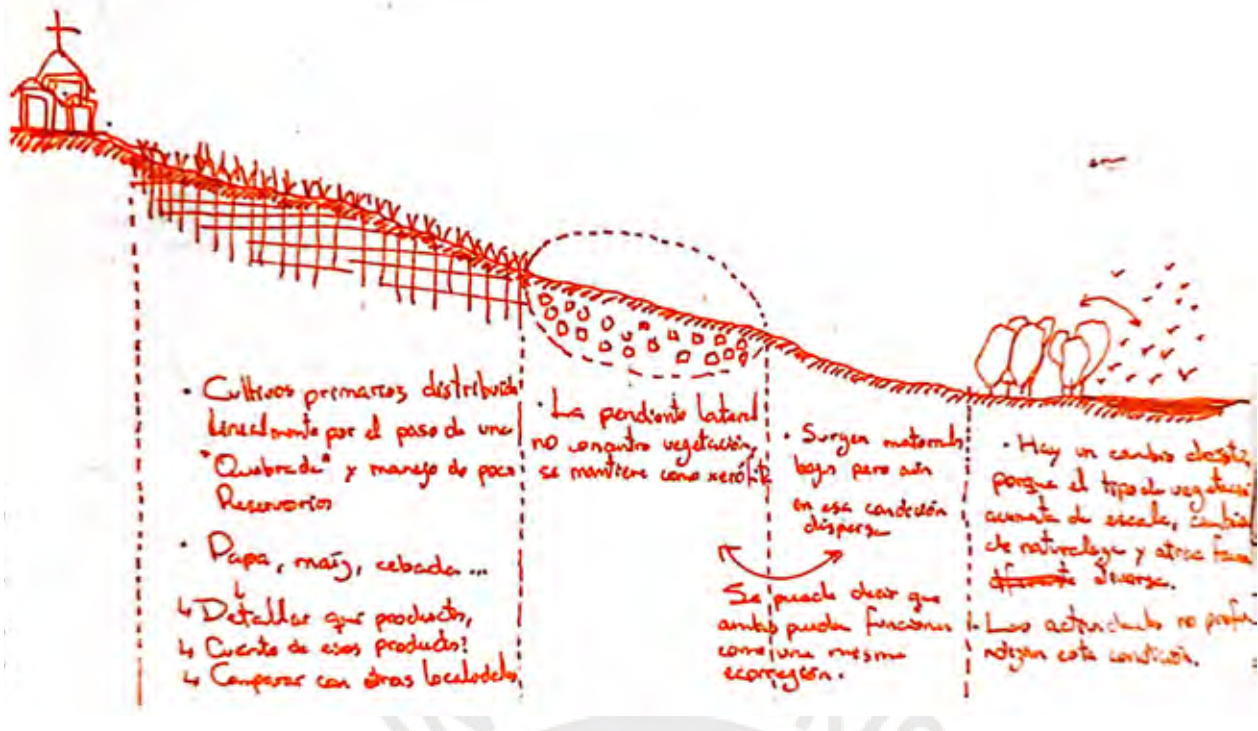 • Cultivos primarios distribuido
linealmente por el paso de una
"Quebrada" y manejo de poco
Reservorios
• Papa, maíz, cebada...
↳ Detallar que productos,
↳ Cuento de esos productos?
↳ Comparar con otras localidades
• La pendiente lateral
no encuentra vegetación,
se mantiene como xerófita
• Surgen matorrales
bajos pero aún
en esa condición
dispersa
Se puede decir que
ambas pueden funcionar
como una misma
ecorregión.
• Hay un cambio drástico
porque el tipo de vegetación
aumenta de escala, cambia
de naturaleza y atrae fauna
diversa.
• Las actividades no
esta condición.